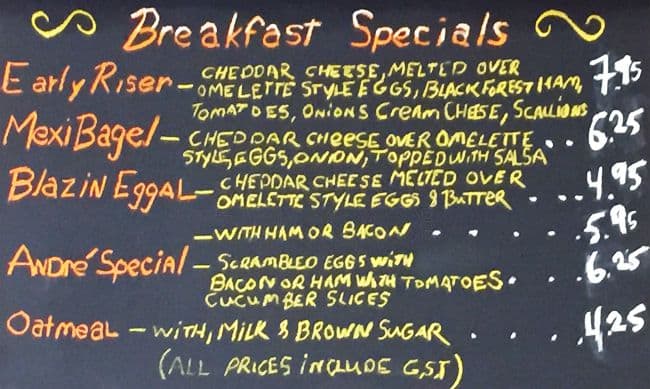 Breakfast Specials
Early Riser - CHEDDAR CHEESE, MELTED OVER
OMELETTE STYLE EGGS, BLACK FOREST HAM, 7.95
TOMATOES, ONIONS CREAM CHEESE, SCALLIONS
Mexi Bagel - CHEDDAR CHEESE OVER OMELETTE .. 6.25
STYLE, EGGS, ONION, TOPPED WITH SALSA
Blazin Eggal - CHEDDAR CHEESE MELTED OVER
OMELETTE STYLE EGGS & BUTTER . ... 4.95
- WITH HAM OR BACON . . . . . 5.95
André Special - SCRAMBLED EGGS WITH . 6.25
BACON OR HAM WITH TOMATOES . .
CUCUMBER SLICES
Oatmeal - WITH, MILK & BROWN SUGAR . . . . . 4.25
(ALL PRICES INCLUDE G.S.T)